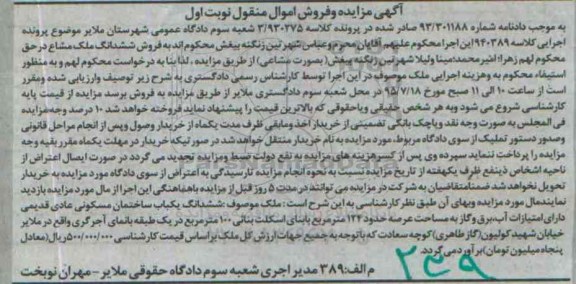 آگهی مزایده وفروش اموال منقول نوبت اول
به موجب دادنامه شماره ۹۳/۳۰۱۱۸۸ صادر شده در پرونده کلاسه ۳/۹۳۰۲۷۵ شعبه سوم دادگاه عمومی شهرستان ملایر موضوع پرونده
اجرایی کلاسه ۹۴۰۳۸۹ این اجرا محکوم علیهم آقایان محرم وعباس شهر بین زنگنه بیغش محکوم اند به فروش ششدانگ ملک مشاع در حق
محکوم لهم زهرا؛ اشیر محمد؛ مینا ولیلا شهر بین زنگنه بیغش (بصورت مشاعی) از طریق مزایده ، لذا بنا به درخواست محکوم لهم و به منظور
استیفاء محکوم به وهزینه اجرایی ملک موصوف در این اجرا توسط کارشناس رسمی دادگستری به شرح زیر توصیف وارزیابی شده ومقرر
است از ساعت ۱۰ الی ۱۱ صبح مورخ ۹۵/۷/۱۸ در محل شعبه سوم دادگستری ملایر از طریق مزایده به فروش برسد مزایده از قیمت پایه
کارشناسی شروع می شود وبه هر شخص حقیقی ویاحقوقی که بالاترین قیمت را پیشنهاد نماید فروخته خواهد شد ۱۰ درصد وجه مزایده
فی المجلس به صورت وجه نقد ویاچک بانکی تضمینی از خریدار اخذ ومابقی ظرف مدت یکماه از خریدار وصول وپس از انجام مراحل قانونی
وصدور دستور تملیک از سوی دادگاه مربوط، مورد مزایده به نام خریدار منتقل خواهد شد در صورتیکه خریدار در مهلت یکماه مقرر بقیه وجه
مزایده را پرداخت ننماید سپرده وی پس از کسر هزینه های مزایده به نفع دولت ضبط ومزایده تجدید می گردد در صورت ایصال اعتراض از
ناحیه اشخاص ذینفع ظرف یکهفته از تاریخ مزایده نسبت به نحوه انجام مزایده تا رسیدگی به اعتراض از سوی دادگاه مورد مزایده به خریدار
تحویل نخواهد شد ضمنا متقاضیان به شرکت در مزایده می توانند در مدت ۵ روز قبل از مزایده باهماهنگی این اجرا از مال مورد مزایده بازدید
نمایند مال مورد مزایده وبهای آن طبق نظر کارشناسی به این شرح است : ملک موصوف ششدانگ یکباب ساختمان مسکونی عادی قدیمی
دارای امتیازات آب، برق وگاز به مساحت عرصه حدود ۱۲۴ متر مربع بابنای اسکلت بنائی ۱۰۰ متر مربع در یک طبقه بانمای آجر گری واقع در ملایر
خیابان شهید کولیون (گاز طاهری) کوچه سعادت که با توجه به جمیع جهات ارزش کل ملک بر اساس قیمت کارشناسی ۵۰۰/۰۰۰/۰۰۰ ریال (معادل
پنجاه میلیون تومان) بر آورد می گردد.
م الف: ۳۸۹ مدیر اجری شعبه سوم دادگاه حقوقی ملایر - مهران نوبخت
۲۳۹